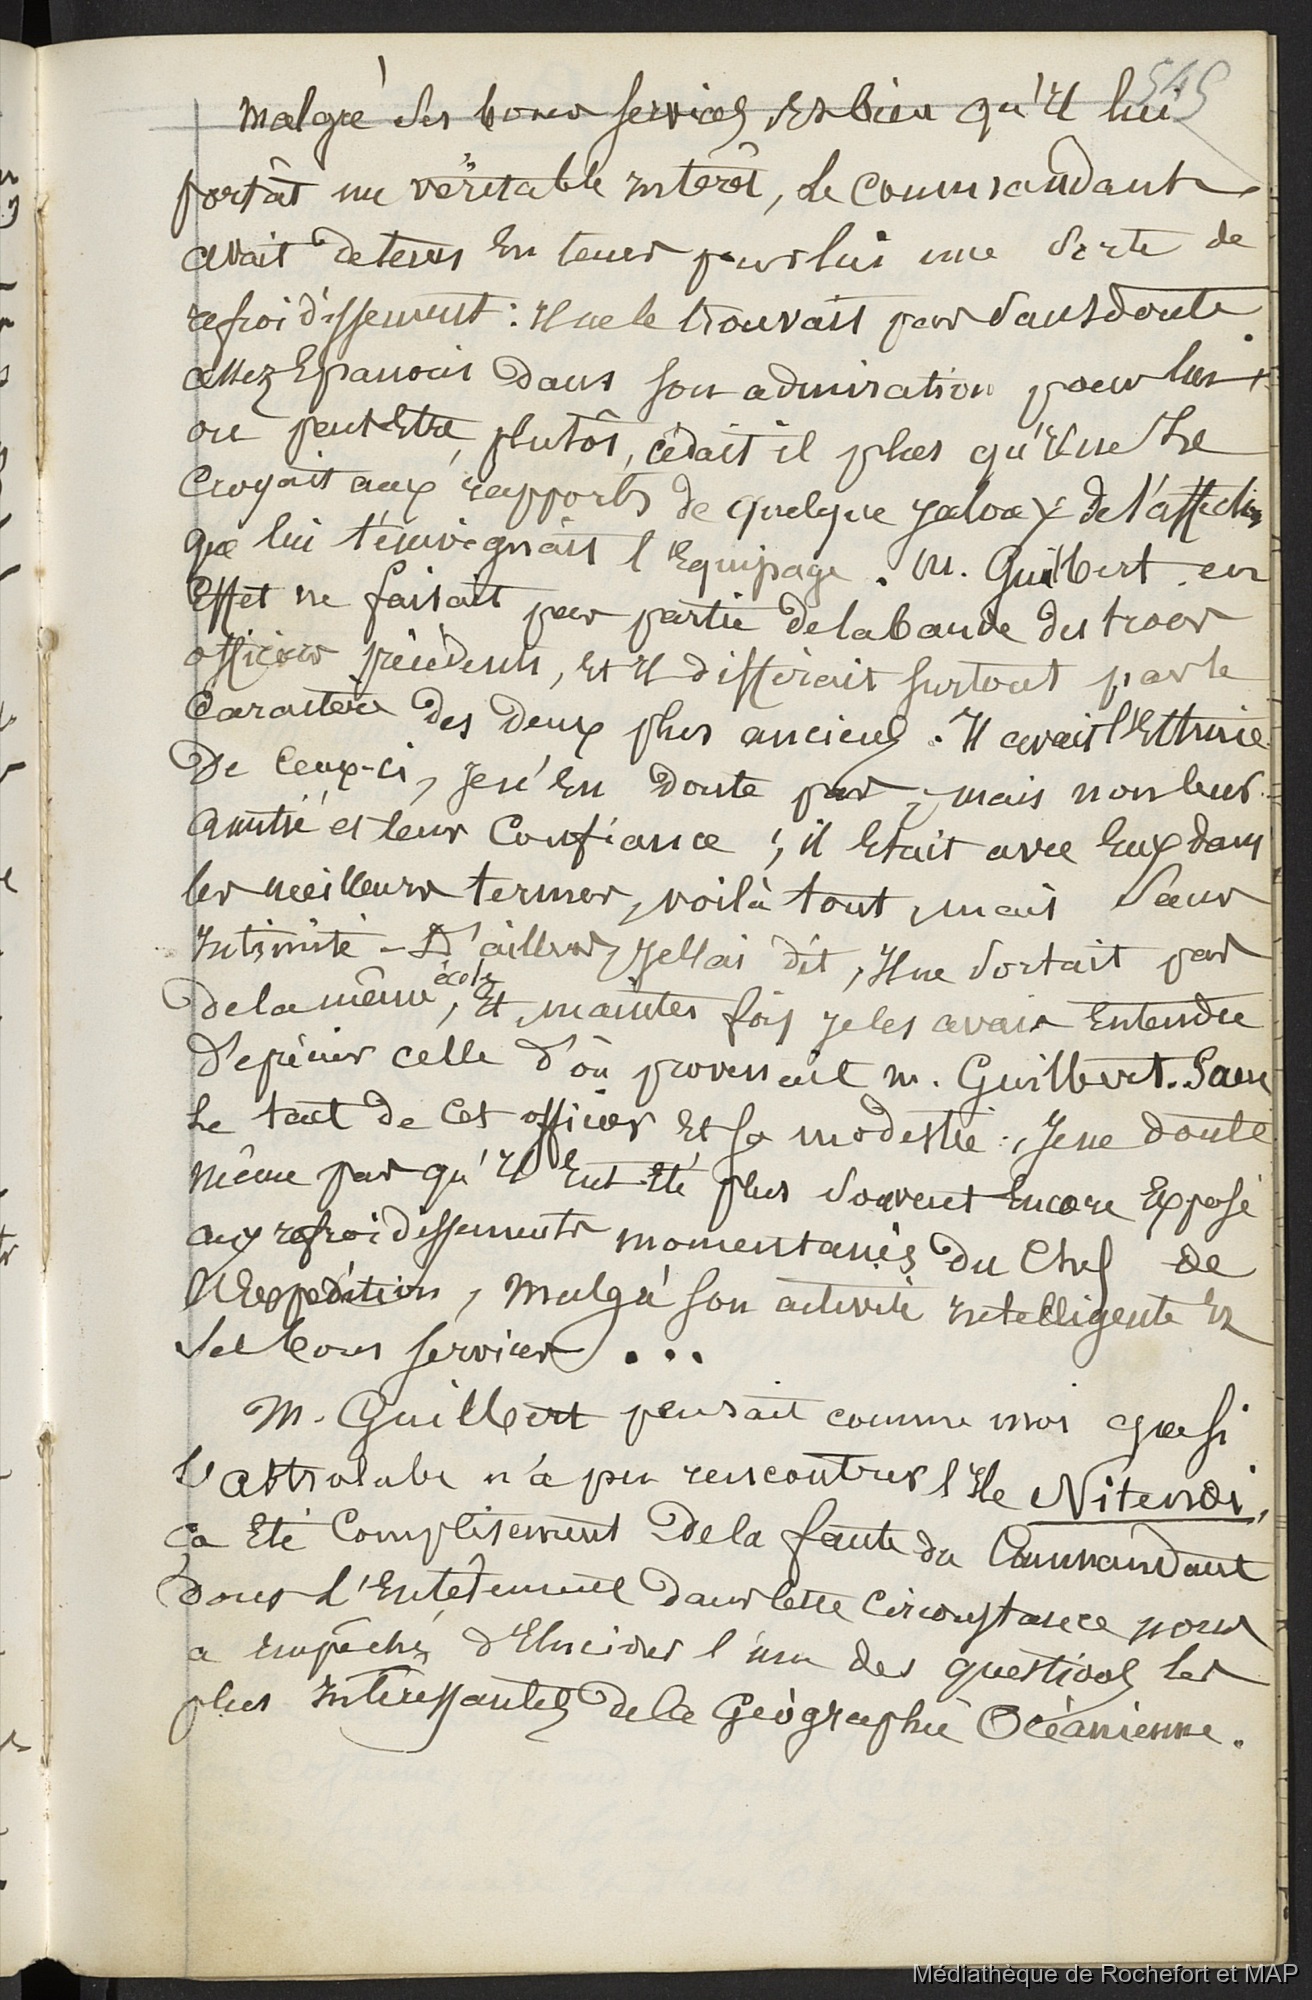 545
Malgré ses bons services, Et bien qu'Il lui
portât un véritable intérêt, Le Commandant
avait de tems En tems pour lui une sorte de
refroidissement : Il ne le trouvait pas sans doute
assez Epanoui dans son admiration pour lui,
ou peut Etre, plutôt, cédait il plus qu'Il ne Le
Croyait aux rapports de quelque jaloux de l'affection
que lui témoignait l'Equipage. M. Guilbert en
Effet ne faisait pas partie de la bande des trois
officiers précédents, Et Il différait surtout par le
Caractère des deux plus anciens. Il avait l'Estime
De Ceux-ci, Je n'En doute pas, mais non leur
amitié et leur Confiance ; il Etait avec Eux dans
les meilleurs termes, voilà tout, mais sans
Intimité - D'ailleurs, Je l'ai dit, Il ne sortait pas
de la même école, Et, maintes fois je les avais Entendu
Déprécier celle d'où provenait M. Guilbert. Sans
Le tact de Cet officier Et sa modestie, Je ne doute
même pas qu'Il Eut Eté plus souvent Encore Exposé
aux refroidissements momentanés du Chef de
l'Expédition, Malgré son activité intelligente Et
Ses bons services ...
M. Guilbert pensait comme moi que si
L'Astrolabe n'a pu rencontrer l'Ile Nitendi,
ça Eté Complètement De la faute du Commandant
dont L'Entêtement dans Cette Circonstance nous
a empêché d'Elucider l'une des questions les
plus Intéressantes de la Géographie Océanienne.
Médiathèque de Rochefort et MAP